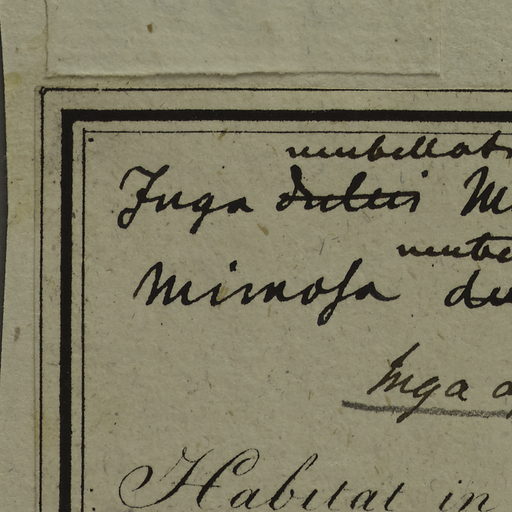 umbellat
Inga dulcis M
umbe
Mimosa du
Inga a
Habitat in